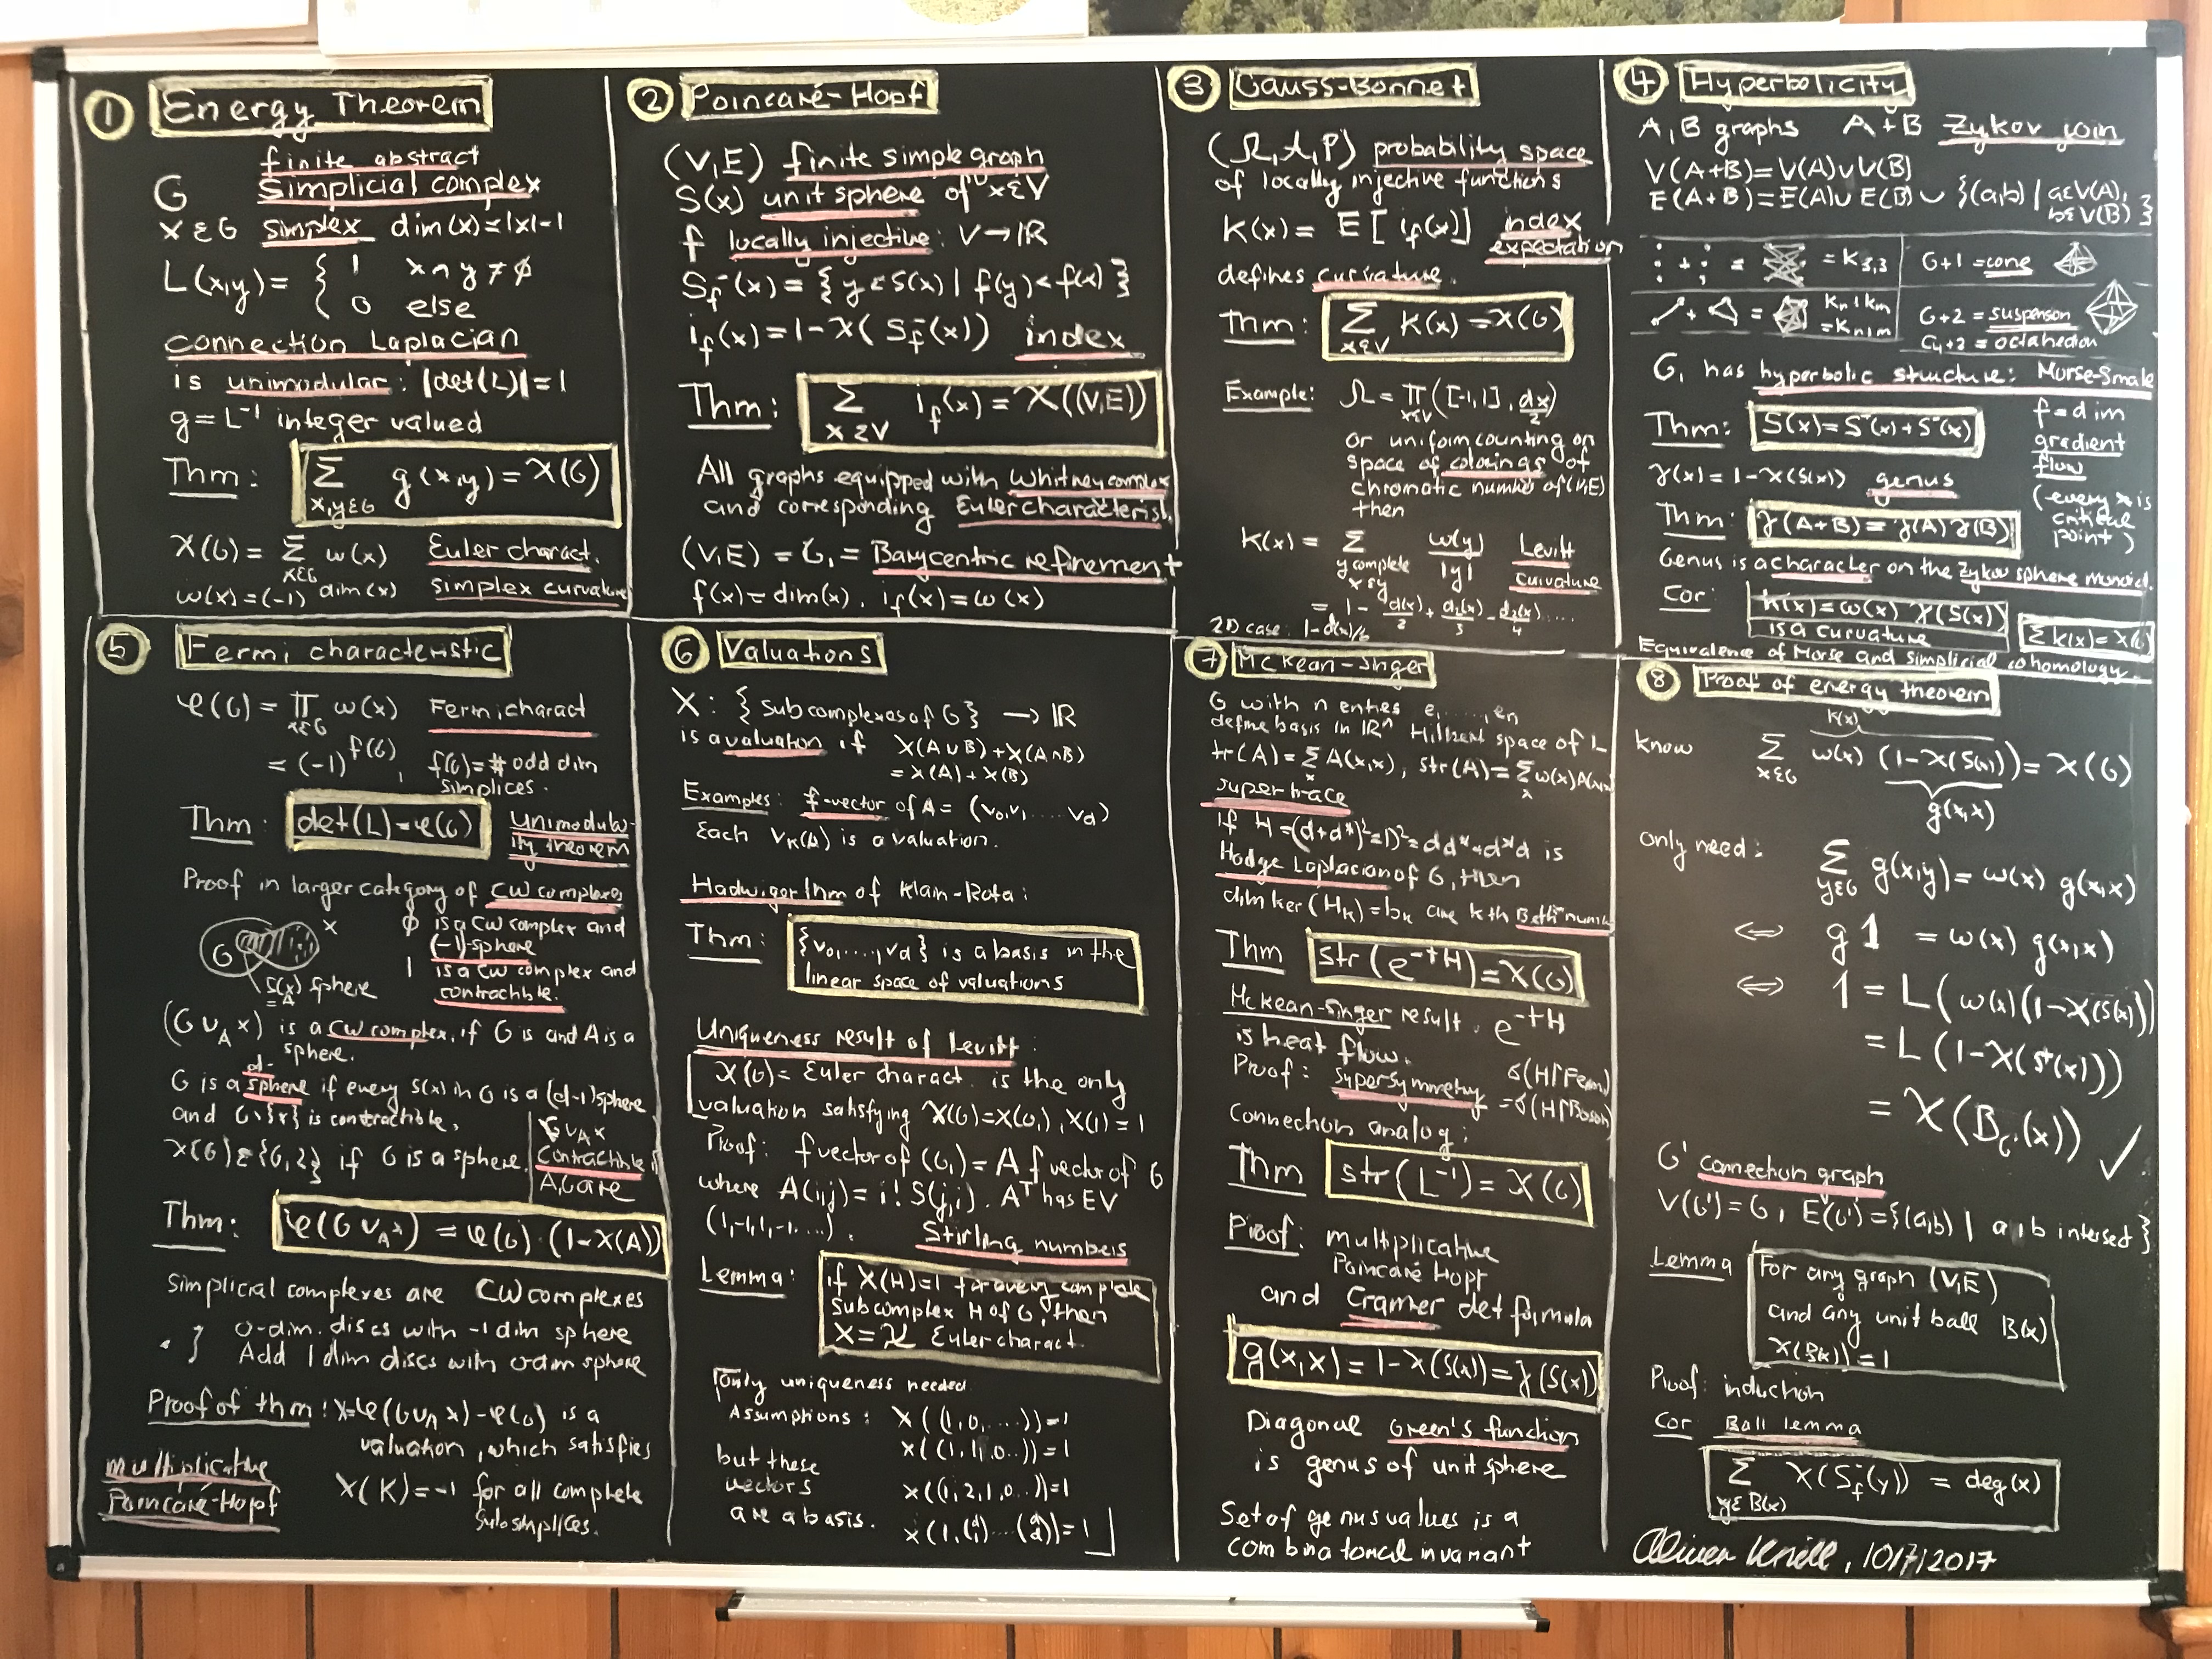 ① Energy Theorem
finite abstract
G simplicial complex
x ε G simplex dim(x)=|x|-1
L(x,y) = { 1 x∩y≠φ
0 else
connection Laplacian
is unimodular: |det(L)|=1
g=L⁻¹ integer valued
Thm: Σ g(x,y) = χ(G)
x,yεG
χ(G) = Σ w(x) Euler charact.
xεG
w(x)=(-1)^dim(x) simplex curvature
② Poincaré-Hopf
(V,E) finite simple graph
S(x) unit sphere of x ε V
f locally injective: V→ℝ
S_f⁻(x) = {y ε S(x) | f(y)<f(x)}
i_f(x)=1-χ(S_f⁻(x)) index
Thm: Σ i_f(x) = χ((V,E))
x ε V
All graphs equipped with Whitney complex
and corresponding Euler characterist.
(V,E) = G₁ = Barycentric refinement
f(x)=dim(x), i_f(x)=w(x)
③ Gauss-Bonnet
(Ω,A,P) probability space
of locally injective functions
K(x) = E[i_f(x)] index
expectation
defines curvature.
Thm: Σ K(x) = χ(G)
xεV
Example: Ω = Π ([-1,1], dx/2)
xεV
or uniform counting on
space of colorings of
chromatic number of (V,E)
then
K(x) = Σ w(y)/|y| Levitt
y complete curvature
x≤y
= 1 - d(x)/2 + d₂(x)/3 - d₃(x)/4 ....
2D case: 1-d(x)/6
④ Hyperbolicity
A,B graphs A+B Zykov join
V(A+B)=V(A)∪V(B)
E(A+B)=E(A)∪E(B)∪{(a,b) | aεV(A),
bεV(B)}
+ = = K₃,₃ G+1 = cone
+ = Kn+Km
=Kn+m
G+2 = suspension
C₄+2 = octahedron
G₁ has hyperbolic structure: Morse-Smale
Thm: S(x)=S⁻(x)+S⁺(x) f=dim
gradient
flow
γ(x)=1-χ(S(x)) genus
(every x is
critical
point)
Thm: γ(A+B)=γ(A)γ(B)
Genus is a character on the Zykov sphere monoid.
Cor: k(x)=w(x)γ(S(x))
is a curvature Σk(x)=χ(G)
Equivalence of Morse and simplicial cohomology.
⑤ Fermi characteristic
φ(G) = Π w(x) Fermi charact
xεG
= (-1)^f(G), f(G)=# odd dim
simplices.
Thm: det(L)=φ(G) Unimodula-
rity theorem
Proof in larger category of CW complexes
G x S(x) sphere
=A
φ is a CW complex and
(-1)-sphere
1 is a CW complex and
contractible.
(G ∪_A x) is a CW complex, if G is and A is a
sphere.
G is a d-sphere if every S(x) in G is a (d-1) sphere
and G\{x} is contractible,
χ(G) ε {0,2} if G is a sphere.
G ∪_A x
contractible if
A,G are
Thm: φ(G ∪_A x) = φ(G)·(1-χ(A))
Simplicial complexes are CW complexes
0-dim. discs with -1 dim sphere
Add 1 dim discs with 0 dim sphere
Proof of thm: X=φ(G ∪_A x)-φ(G) is a
valuation, which satisfies
X(K)=-1 for all complete
subsimplices.
multiplicative
Poincaré-Hopf
⑥ Valuations
X: {subcomplexes of G} → ℝ
is a valuation if X(A∪B)+X(A∩B)
=X(A)+X(B)
Examples: f-vector of A = (v₀,v₁ ... v_d)
Each v_k(A) is a valuation.
Hadwiger thm of Klain-Rota:
Thm: {v₀,....,v_d} is a basis in the
linear space of valuations
Uniqueness result of Levitt:
χ(G)= Euler charact. is the only
valuation satisfying X(G)=X(G₁), X(1)=1
Proof: f vector of (G₁) = A f vector of G
where A(i,j)=i! S(j,i). Aᵀ has EV
(1,-1,1,-1....). Stirling numbers
Lemma: if X(H)=1 for every complete
subcomplex H of G, then
X=χ Euler charact.
Only uniqueness needed
Assumptions: X((1,0,...))=1
but these X((1,1,0..))=1
vectors X((1,2,1,0...))=1
are a basis. X(1,(d 1)...(d d))=1
⑦ McKean-Singer
G with n entries e₁......,en
define basis in ℝⁿ Hilbert space of L
tr(A)=Σ A(x,x), str(A)=Σ w(x)A(x,x)
x x
super trace
if H=(d+d*)²=D²=dd*+d*d is
Hodge Laplacian of G, then
dim ker(H_k)=b_k are kth Betti numb
Thm str(e^-tH)=χ(G)
McKean-Singer result. e^-tH
is heat flow.
Proof: supersymmetry σ(H|Ferm)
=σ(H|Boson)
Connection analog:
Thm str(L⁻¹)=χ(G)
Proof: multiplicative
Poincaré Hopf
and Cramer det formula
g(x,x)=1-χ(S(x))=γ(S(x))
Diagonal Green's function
is genus of unit sphere
Set of genus values is a
combinatorial invariant
⑧ Proof of energy theorem
k(x)
know Σ w(x) (1-χ(S(x)))=χ(G)
xεG
g(x,x)
only need: Σ g(x,y)=w(x) g(x,x)
yεG
⇔ g1 = w(x) g(x,x)
⇔ 1 = L(w(x)(1-χ(S(x)))
= L(1-χ(S⁺(x)))
= χ(B_G'(x)) ✓
G' connection graph
V(G')=G, E(G')={(a,b) | a,b intersect}
Lemma For any graph (V,E)
and any unit ball B(x)
χ(B(x))=1
Proof: induction
Cor Ball lemma
Σ χ(S_f⁻(y)) = deg(x)
yεB(x)
Oliver Knill, 10/7/2017